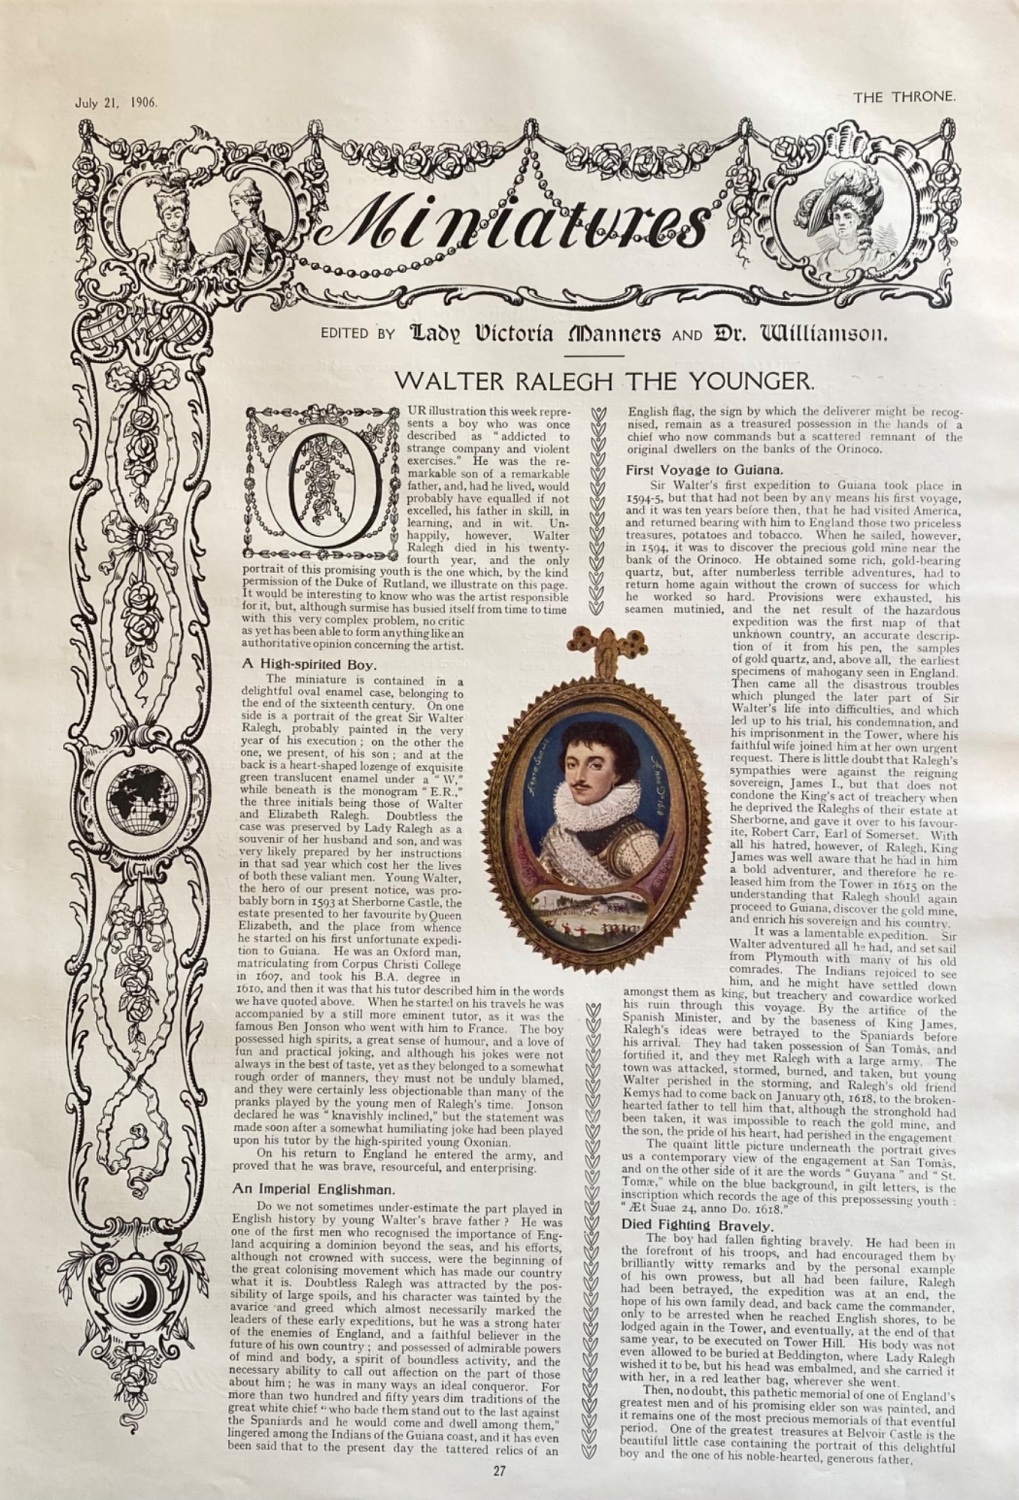 July 21, 1906.
THE THRONE.
Miniatures
EDITED BY Lady Victoria Manners AND Dr. Williamson.
WALTER RALEGH THE YOUNGER.
OUR illustration this week repre-
sents a boy who was once
described as "addicted to
strange company and violent
exercises." He was the re-
markable son of a remarkable
father, and, had he lived, would
probably have equalled if not
excelled, his father in skill, in
learning, and in wit. Un-
happily, however, Walter
Ralegh died in his twenty-
fourth year, and the only
portrait of this promising youth is the one which, by the kind
permission of the Duke of Rutland, we illustrate on this page.
It would be interesting to know who was the artist responsible
for it, but, although surmise has busied itself from time to time
with this very complex problem, no critic
as yet has been able to form anything like an
authoritative opinion concerning the artist.
A High-spirited Boy.
The miniature is contained in a
delightful oval enamel case, belonging to
the end of the sixteenth century. On one
side is a portrait of the great Sir Walter
Ralegh, probably painted in the very
year of his execution; on the other the
one, we present, of his son; and at the
back is a heart-shaped lozenge of exquisite
green translucent enamel under a "W,"
while beneath is the monogram "E.R.,"
the three initials being those of Walter
and Elizabeth Ralegh. Doubtless the
case was preserved by Lady Ralegh as a
souvenir of her husband and son, and was
very likely prepared by her instructions
in that sad year which cost her the lives
of both these valiant men. Young Walter,
the hero of our present notice, was pro-
bably born in 1593 at Sherborne Castle, the
estate presented to her favourite by Queen
Elizabeth, and the place from whence
he started on his first unfortunate expedi-
tion to Guiana. He was an Oxford man,
matriculating from Corpus Christi College
in 1607, and took his B.A. degree in
1610, and then it was that his tutor described him in the words
we have quoted above. When he started on his travels he was
accompanied by a still more eminent tutor, as it was the
famous Ben Jonson who went with him to France. The boy
possessed high spirits, a great sense of humour, and a love of
fun and practical joking, and although his jokes were not
always in the best of taste, yet as they belonged to a somewhat
rough order of manners, they must not be unduly blamed,
and they were certainly less objectionable than many of the
pranks played by the young men of Ralegh's time. Jonson
declared he was "knavishly inclined," but the statement was
made soon after a somewhat humiliating joke had been played
upon his tutor by the high-spirited young Oxonian.
On his return to England he entered the army, and
proved that he was brave, resourceful, and enterprising.
An Imperial Englishman.
Do we not sometimes under-estimate the part played in
English history by young Walter's brave father? He was
one of the first men who recognised the importance of Eng-
land acquiring a dominion beyond the seas, and his efforts,
although not crowned with success, were the beginning of
the great colonising movement which has made our country
what it is. Doubtless Ralegh was attracted by the pos-
sibility of large spoils, and his character was tainted by the
avarice and greed which almost necessarily marked the
leaders of these early expeditions, but he was a strong hater
of the enemies of England, and a faithful believer in the
future of his own country; and possessed of admirable powers
of mind and body, a spirit of boundless activity, and the
necessary ability to call out affection on the part of those
about him; he was in many ways an ideal conqueror. For
more than two hundred and fifty years dim traditions of the
great white chief "who bade them stand out to the last against
the Spaniards and he would come and dwell among them,"
lingered among the Indians of the Guiana coast, and it has even
been said that to the present day the tattered relics of an
English flag, the sign by which the deliverer might be recog-
nised, remain as a treasured possession in the hands of a
chief who now commands but a scattered remnant of the
original dwellers on the banks of the Orinoco.
First Voyage to Guiana.
Sir Walter's first expedition to Guiana took place in
1594-5, but that had not been by any means his first voyage,
and it was ten years before then, that he had visited America,
and returned bearing with him to England those two priceless
treasures, potatoes and tobacco. When he sailed, however,
in 1594, it was to discover the precious gold mine near the
bank of the Orinoco. He obtained some rich, gold-bearing
quartz, but, after numberless terrible adventures, had to
return home again without the crown of success for which
he worked so hard. Provisions were exhausted, his
seamen mutinied, and the net result of the hazardous
expedition was the first map of that
unknown country, an accurate descrip-
tion of it from his pen, the samples
of gold quartz, and, above all, the earliest
specimens of mahogany seen in England.
Then came all the disastrous troubles
which plunged the later part of Sir
Walter's life into difficulties, and which
led up to his trial, his condemnation, and
his imprisonment in the Tower, where his
faithful wife joined him at her own urgent
request. There is little doubt that Ralegh's
sympathies were against the reigning
sovereign, James I., but that does not
condone the King's act of treachery when
he deprived the Raleghs of their estate at
Sherborne, and gave it over to his favour-
ite, Robert Carr, Earl of Somerset. With
all his hatred, however, of Ralegh, King
James was well aware that he had in him
a bold adventurer, and therefore he re-
leased him from the Tower in 1615 on the
understanding that Ralegh should again
proceed to Guiana, discover the gold mine,
and enrich his sovereign and his country.
It was a lamentable expedition. Sir
Walter adventured all he had, and set sail
from Plymouth with many of his old
comrades. The Indians rejoiced to see
him, and he might have settled down
amongst them as king, but treachery and cowardice worked
his ruin through this voyage. By the artifice of the
Spanish Minister, and by the baseness of King James,
Ralegh's ideas were betrayed to the Spaniards before
his arrival. They had taken possession of San Tomàs, and
fortified it, and they met Ralegh with a large army. The
town was attacked, stormed, burned, and taken, but young
Walter perished in the storming, and Ralegh's old friend
Kemys had to come back on January 9th, 1618, to the broken-
hearted father to tell him that, although the stronghold had
been taken, it was impossible to reach the gold mine, and
the son, the pride of his heart, had perished in the engagement
The quaint little picture underneath the portrait gives
us a contemporary view of the engagement at San Tomàs,
and on the other side of it are the words "Guyana" and "St.
Tomæ," while on the blue background, in gilt letters, is the
inscription which records the age of this prepossessing youth:
"Æt Suae 24, anno Do. 1618."
Died Fighting Bravely.
The boy had fallen fighting bravely. He had been in
the forefront of his troops, and had encouraged them by
brilliantly witty remarks and by the personal example
of his own prowess, but all had been failure, Ralegh
had been betrayed, the expedition was at an end, the
hope of his own family dead, and back came the commander,
only to be arrested when he reached English shores, to be
lodged again in the Tower, and eventually, at the end of that
same year, to be executed on Tower Hill. His body was not
even allowed to be buried at Beddington, where Lady Ralegh
wished it to be, but his head was embalmed, and she carried it
with her, in a red leather bag, wherever she went.
Then, no doubt, this pathetic memorial of one of England's
greatest men and of his promising elder son was painted, and
it remains one of the most precious memorials of that eventful
period. One of the greatest treasures at Belvoir Castle is the
beautiful little case containing the portrait of this delightful
boy and the one of his noble-hearted, generous father.
27